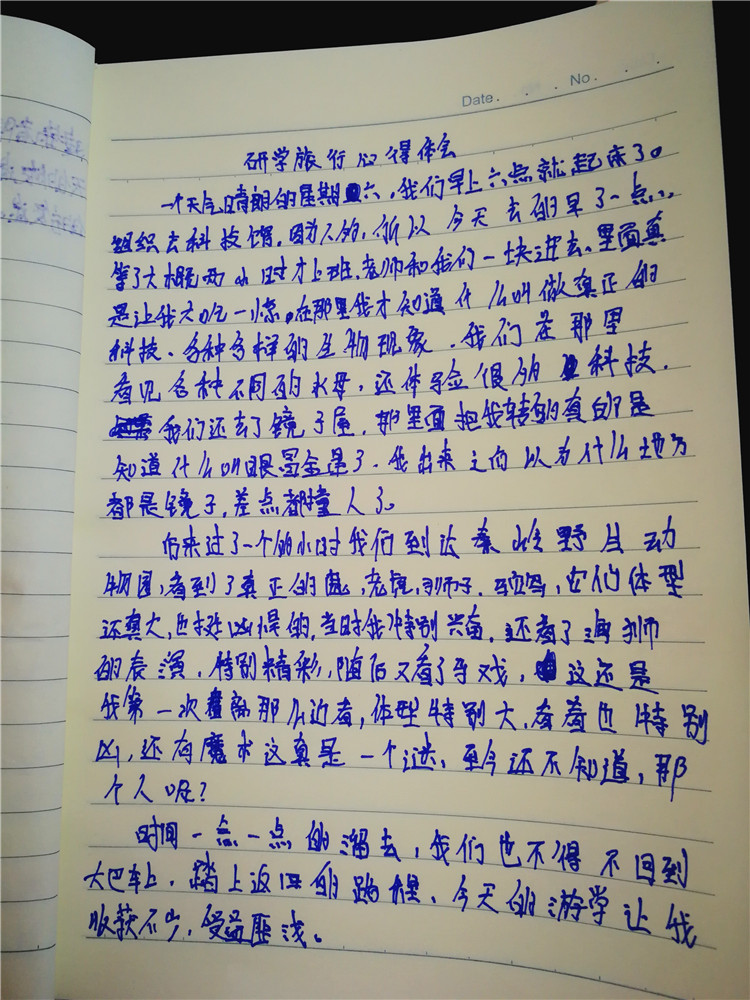 Date. No.
研学旅行心得体会
一个天气晴朗的星期六,我们早上六点就起床了。
组织去科技馆,因为人多,所以今天去的早了一点,
等了大概两小时才上班,老师和我们一块进去,里面真
是让我大吃一惊。在那里我才知道什么叫做真正的
科技、各种各样的生物现象.我们在那里
看见各种不同的水母,还体验很多科技.
我们还去了镜子屋,那里面把我转的真的是
知道什么叫眼冒金星了.我出来之向以为什么地方
都是镜子,差点都撞人了。
后来过了一个的小时我们到达秦岭野生动
物园,看到了真正的老虎,狮子,它们体型
还真大,也挺凶惧的,当时我特别兴奋,还看了海狮
的表演,特别精彩,随后又看了马戏,这还是
我第一次离那么近看,体型特别大,看着也特别
凶,还有魔术这真是一个谜,至今还不知道,那
个人呢?
时间一点一点的溜去,我们也不得不回到
大巴车上,踏上返回的路程、今天的游学让我
收获不少,受益匪浅。